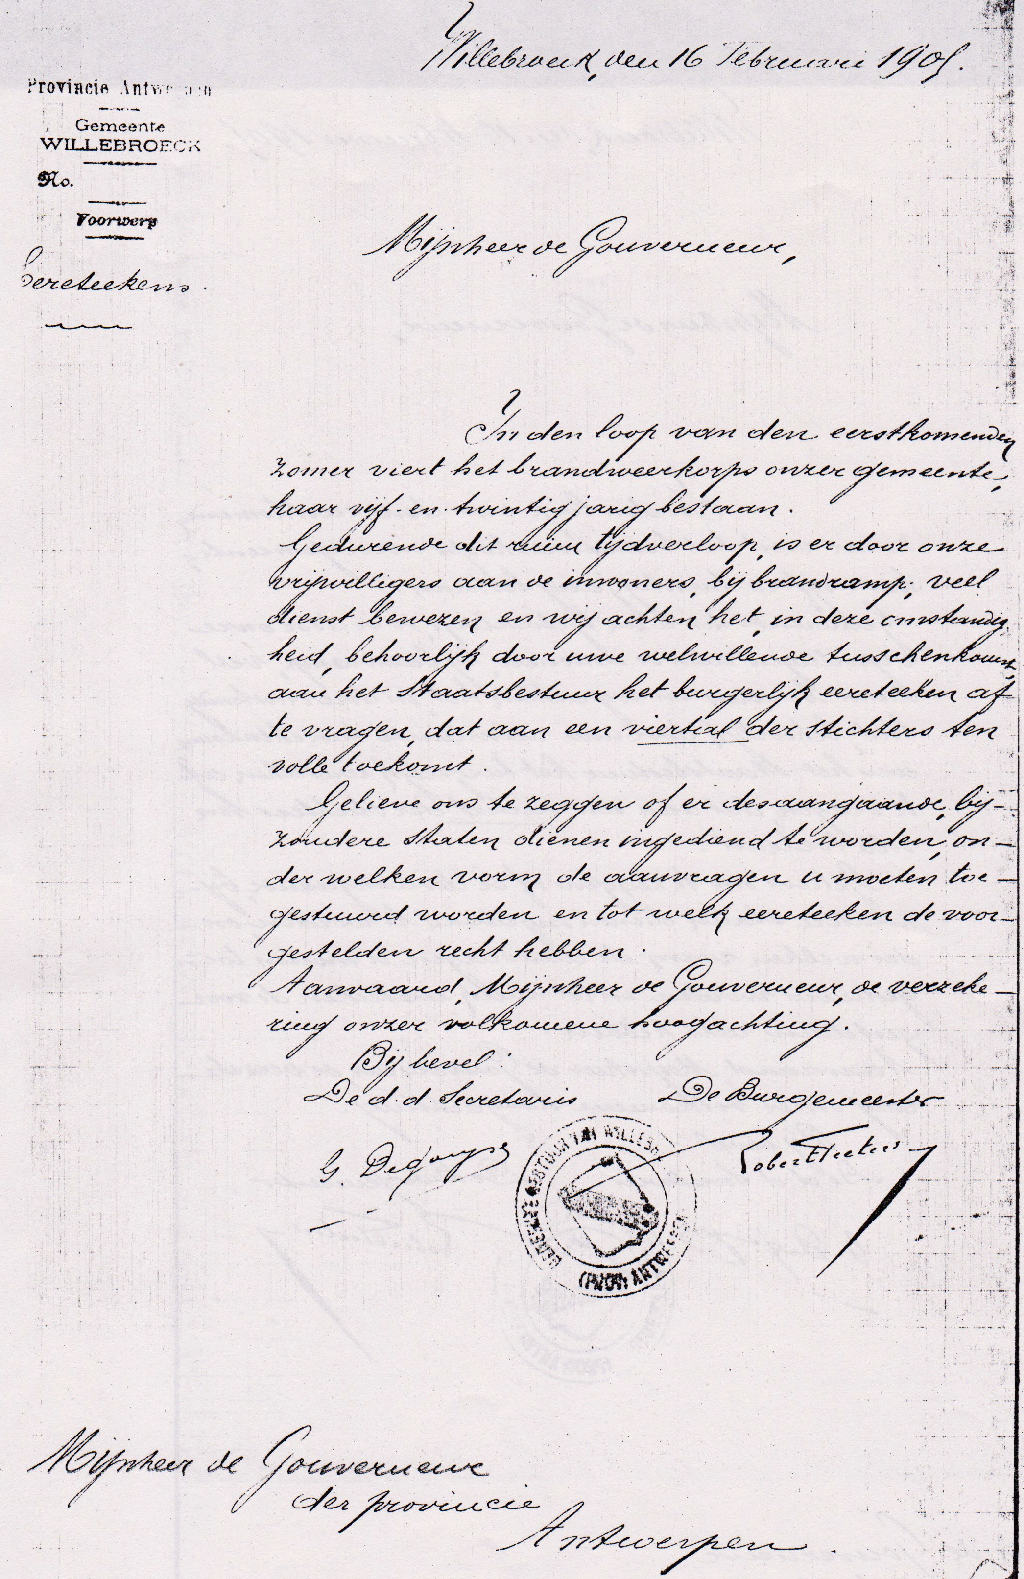 Willebroeck, den 16 Februari 1905.
Provincie Antwerpen
Gemeente
WILLEBROECK
No.
Voorwerp
Eereteekens.
Mijnheer de Gouverneur,
In den loop van den eerstkomenden
zomer viert het brandweerkorps onzer gemeente,
haar vijf-en-twintig jarig bestaan.
Gedurende dit ruim tijdverloop, is er door onze
vrijwilligers aan de inwoners, bij brandramp, veel
dienst bewezen en wij achten het, in deze omstandig
heid, behoorlijk door uwe welwillende tusschenkomst,
aan het Staatsbestuur het burgerlijk eereteeken af
te vragen, dat aan een viertal der stichters ten
volle toekomt.
Gelieve ons te zeggen of er desaangaande, bij-
zondere staten dienen ingediend te worden, on-
der welken vorm de aanvragen u moeten toe-
gestuurd worden en tot welk eereteeken de voor-
gestelden recht hebben.
Aanvaard, Mijnheer de Gouverneur, de verzeke-
ring onzer volkomene hoogachting.
Bij bevel:
De d. d. Secretaris De Burgemeester
G. Robert Fleeters
GEMEENTE BESTUUR VAN WILLEBROECK
(PROV) ANTWERPEN
Mijnheer de Gouverneur
der provincie
Antwerpen.